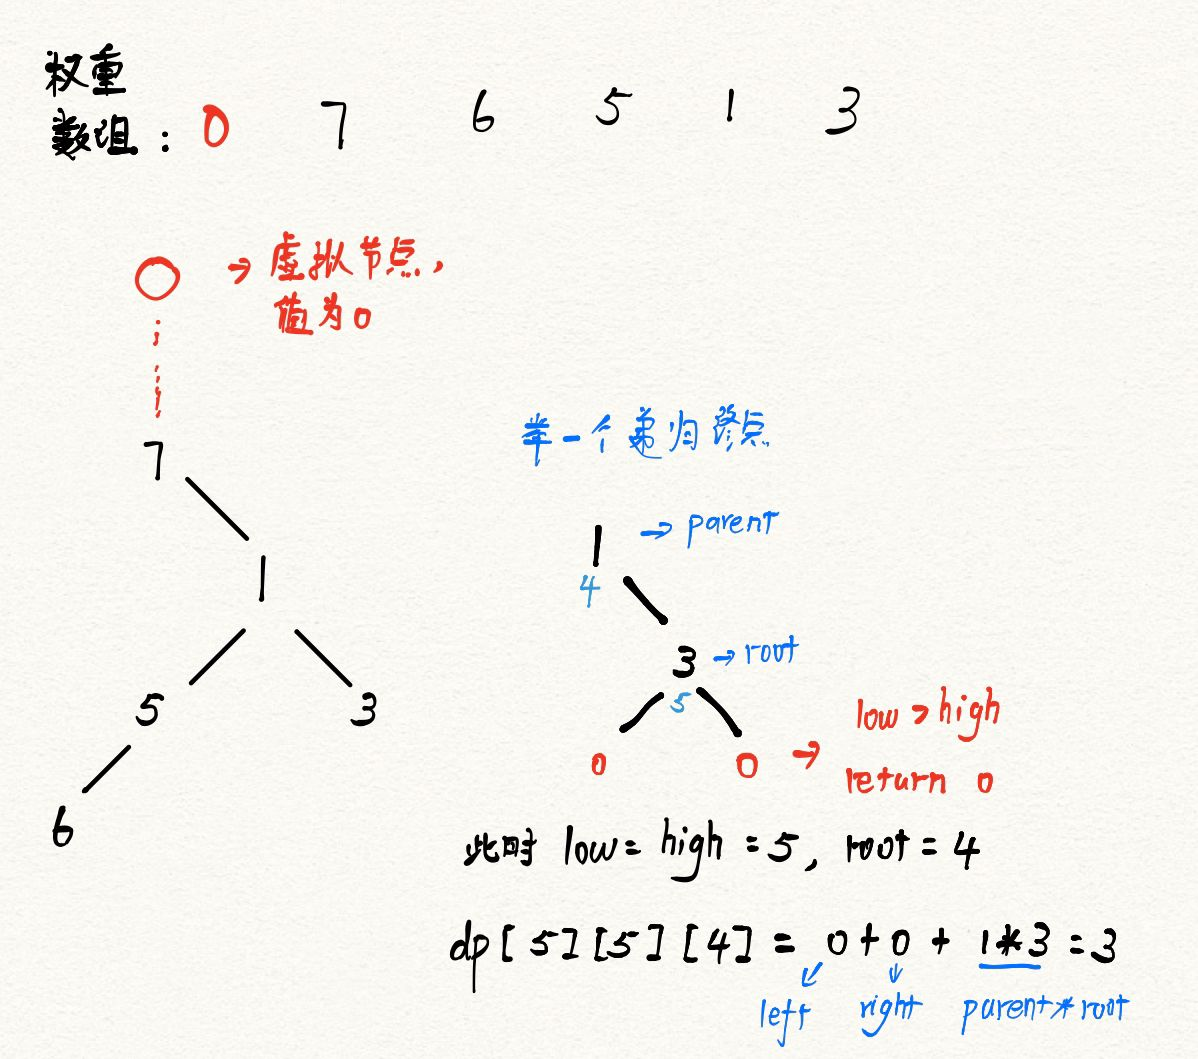 权重
数组：0 7 6 5 1 3
→ 虚拟节点，
值为0
7
1
5 3
6
举一个递归终点
1 → parent
4
3 → root
5
0 0 → low > high
return 0
此时 low = high = 5, root = 4
dp[5][5][4] = 0 + 0 + 1*3 = 3
left right parent*root